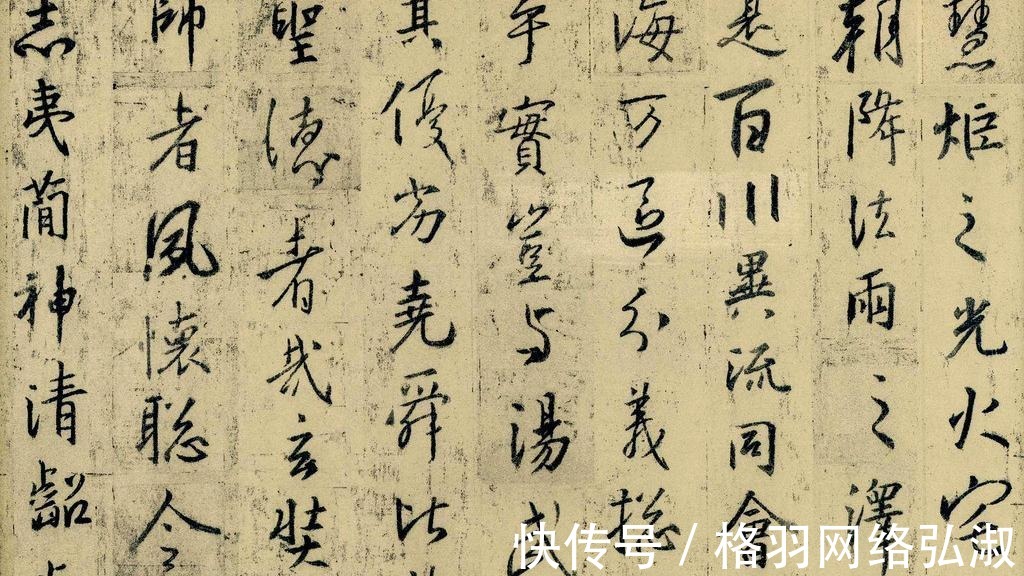 慧炬之光火宅
朝降法雨之澤
是百川異流同會
海万區分義揔
乎實豈与湯武
其優劣堯舜比
聖德者哉玄奘
師者夙懷聡令
志夷簡神清齠
快传号 / 格羽网络弘淑